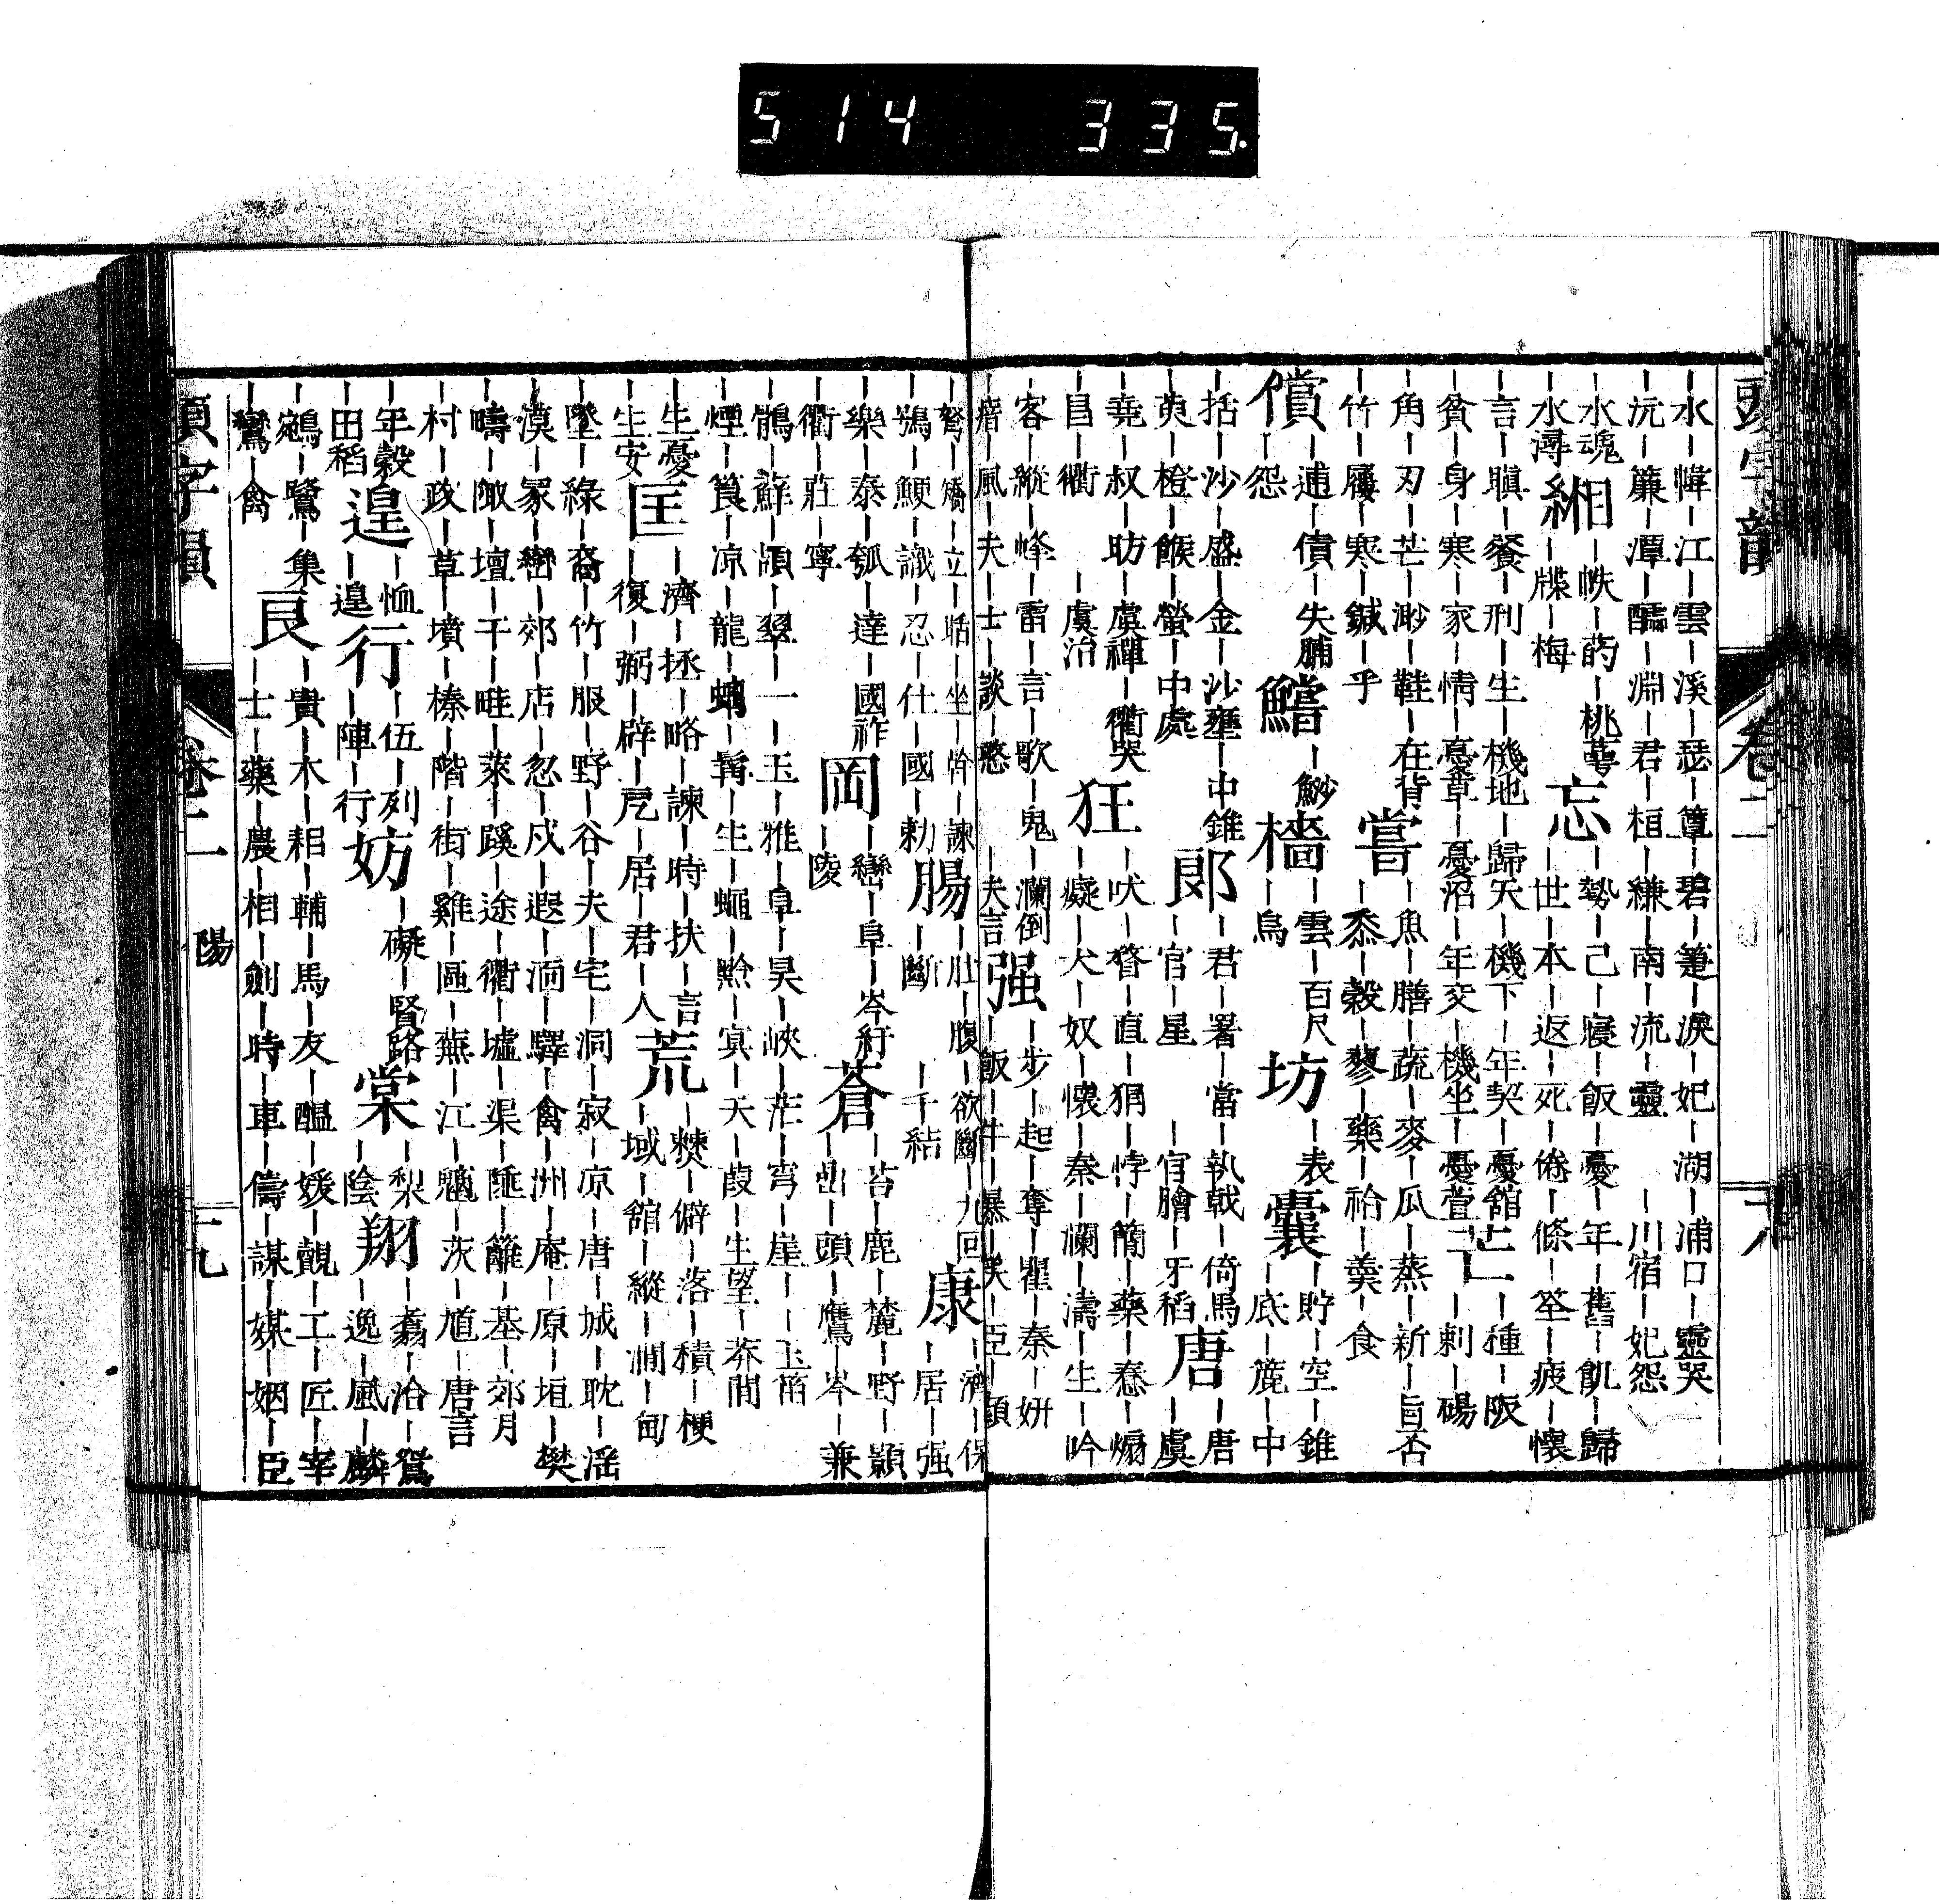 514 335.
頭字韻 卷二 十八
｜水｜幃｜江｜雲｜溪｜瑟｜簟｜碧｜箑｜淚｜妃｜湖｜浦口｜靈哭
｜沅｜簾｜潭｜醽｜淵｜君｜桓｜縑｜南｜流｜靈 ｜川宿｜妃怨
｜水魂 緗 ｜帙｜药｜桃蕚 忘 ｜勢｜己｜寢｜飯｜憂｜年｜舊｜飢｜歸
｜水潯 ｜牒｜梅 ｜世｜本｜返｜死｜倦｜條｜筌｜疲｜懷
｜言｜瞋｜餐｜刑｜生｜機地｜歸天｜機下｜年契｜憂館 芒 ｜種｜阪
｜貧｜身｜寒｜家｜情｜憂草｜憂沼｜年交｜機坐｜憂萱 ｜刺｜碭
｜角｜刃｜芒｜渺｜鞋｜在背 嘗 ｜魚｜膳｜蔬｜麥｜瓜｜蒸｜新｜旨否
｜竹｜屨｜寒｜鍼｜乎 ｜黍｜穀｜蓼｜藥｜祫｜羹｜食
償 ｜逋｜債｜失脯 鱨 ｜魦 檣 ｜雲｜百尺 坊 ｜表 囊 ｜貯｜空｜錐
｜怨 ｜烏 ｜底｜簏｜中
｜括｜沙｜盛｜金｜沙壅｜中錐 郞 ｜君｜署｜當｜執戟｜倚馬 唐 ｜唐
｜萸｜橙｜餱｜螢｜中處 ｜官｜星 ｜官膾｜牙稻 ｜虞
｜堯｜叔｜昉｜虞禪｜衢哭 狂 ｜吠｜瞽｜直｜狷｜悖｜簡｜藥｜惷｜煽
｜昌｜衢 ｜虞治 ｜癡｜犬｜奴｜懷｜秦｜瀾｜濤｜生｜吟
｜客｜縱｜峰｜雷｜言｜歌｜鬼｜瀾倒 强 ｜步｜起｜奪｜瞿｜秦｜姸
｜瘖｜風｜夫｜士｜談｜憨 ｜夫言 ｜飯｜牛｜暴｜笑｜臣｜顏
｜弩｜矯｜立｜聒｜坐｜幹｜諫 腸 ｜肚｜腹｜欲斷｜九回 康 ｜濟｜保
｜鴉｜鯁｜識｜忍｜仕｜國｜勅 ｜斷 ｜千結 ｜居｜强
｜樂｜泰｜瓠｜達｜國祚 岡 ｜巒｜阜｜岑｜紆 蒼 ｜苔｜鹿｜麓｜野｜顥
｜衢｜莊｜寧 ｜陵 ｜出｜頭｜鷹｜岑｜兼
｜鶻｜蘚｜頭｜翠｜一｜玉｜雅｜阜｜昊｜峽｜茫｜穹｜崖｜｜玉笛
｜煙｜筤｜凉｜龍｜蜩｜髯｜生｜蠅｜黔｜寘｜天｜葭｜生望｜莽間
｜生憂 匡 ｜濟｜拯｜略｜諫｜時｜扶｜言 荒 ｜僰｜僻｜落｜積｜梗
｜生安 ｜復｜弼｜辟｜卮｜居｜君｜人 ｜域｜館｜縱｜澗｜甸
｜墜｜綠｜裔｜竹｜服｜野｜谷｜夫｜宅｜洞｜寂｜凉｜唐｜城｜耽｜滛
｜漠｜冢｜巒｜郊｜店｜忽｜戍｜遐｜洞｜驛｜禽｜洲｜庵｜原｜垣｜樊
｜疇｜陬｜壇｜干｜畦｜萊｜蹊｜途｜衢｜墟｜渠｜陲｜籬｜基｜郊月
｜村｜政｜草｜墳｜榛｜階｜街｜雞｜區｜蕪｜江｜魑｜茨｜馗｜唐言
｜年穀 遑 ｜恤 行 ｜伍｜列 妨 ｜礙｜賢路 棠 ｜梨 翔 ｜翥｜冶｜鴛
｜田稻 ｜遑 ｜陣｜行 ｜陰 ｜逸｜風｜麟
｜鵷｜鷺｜集 良 ｜貴｜木｜耜｜輔｜馬｜友｜醞｜媛｜覿｜工｜匠｜宰
｜鸞｜禽 ｜士｜藥｜農｜相｜劍｜時｜車｜儔｜謀｜媒｜姻｜臣
頭字韻 卷二 陽 十九